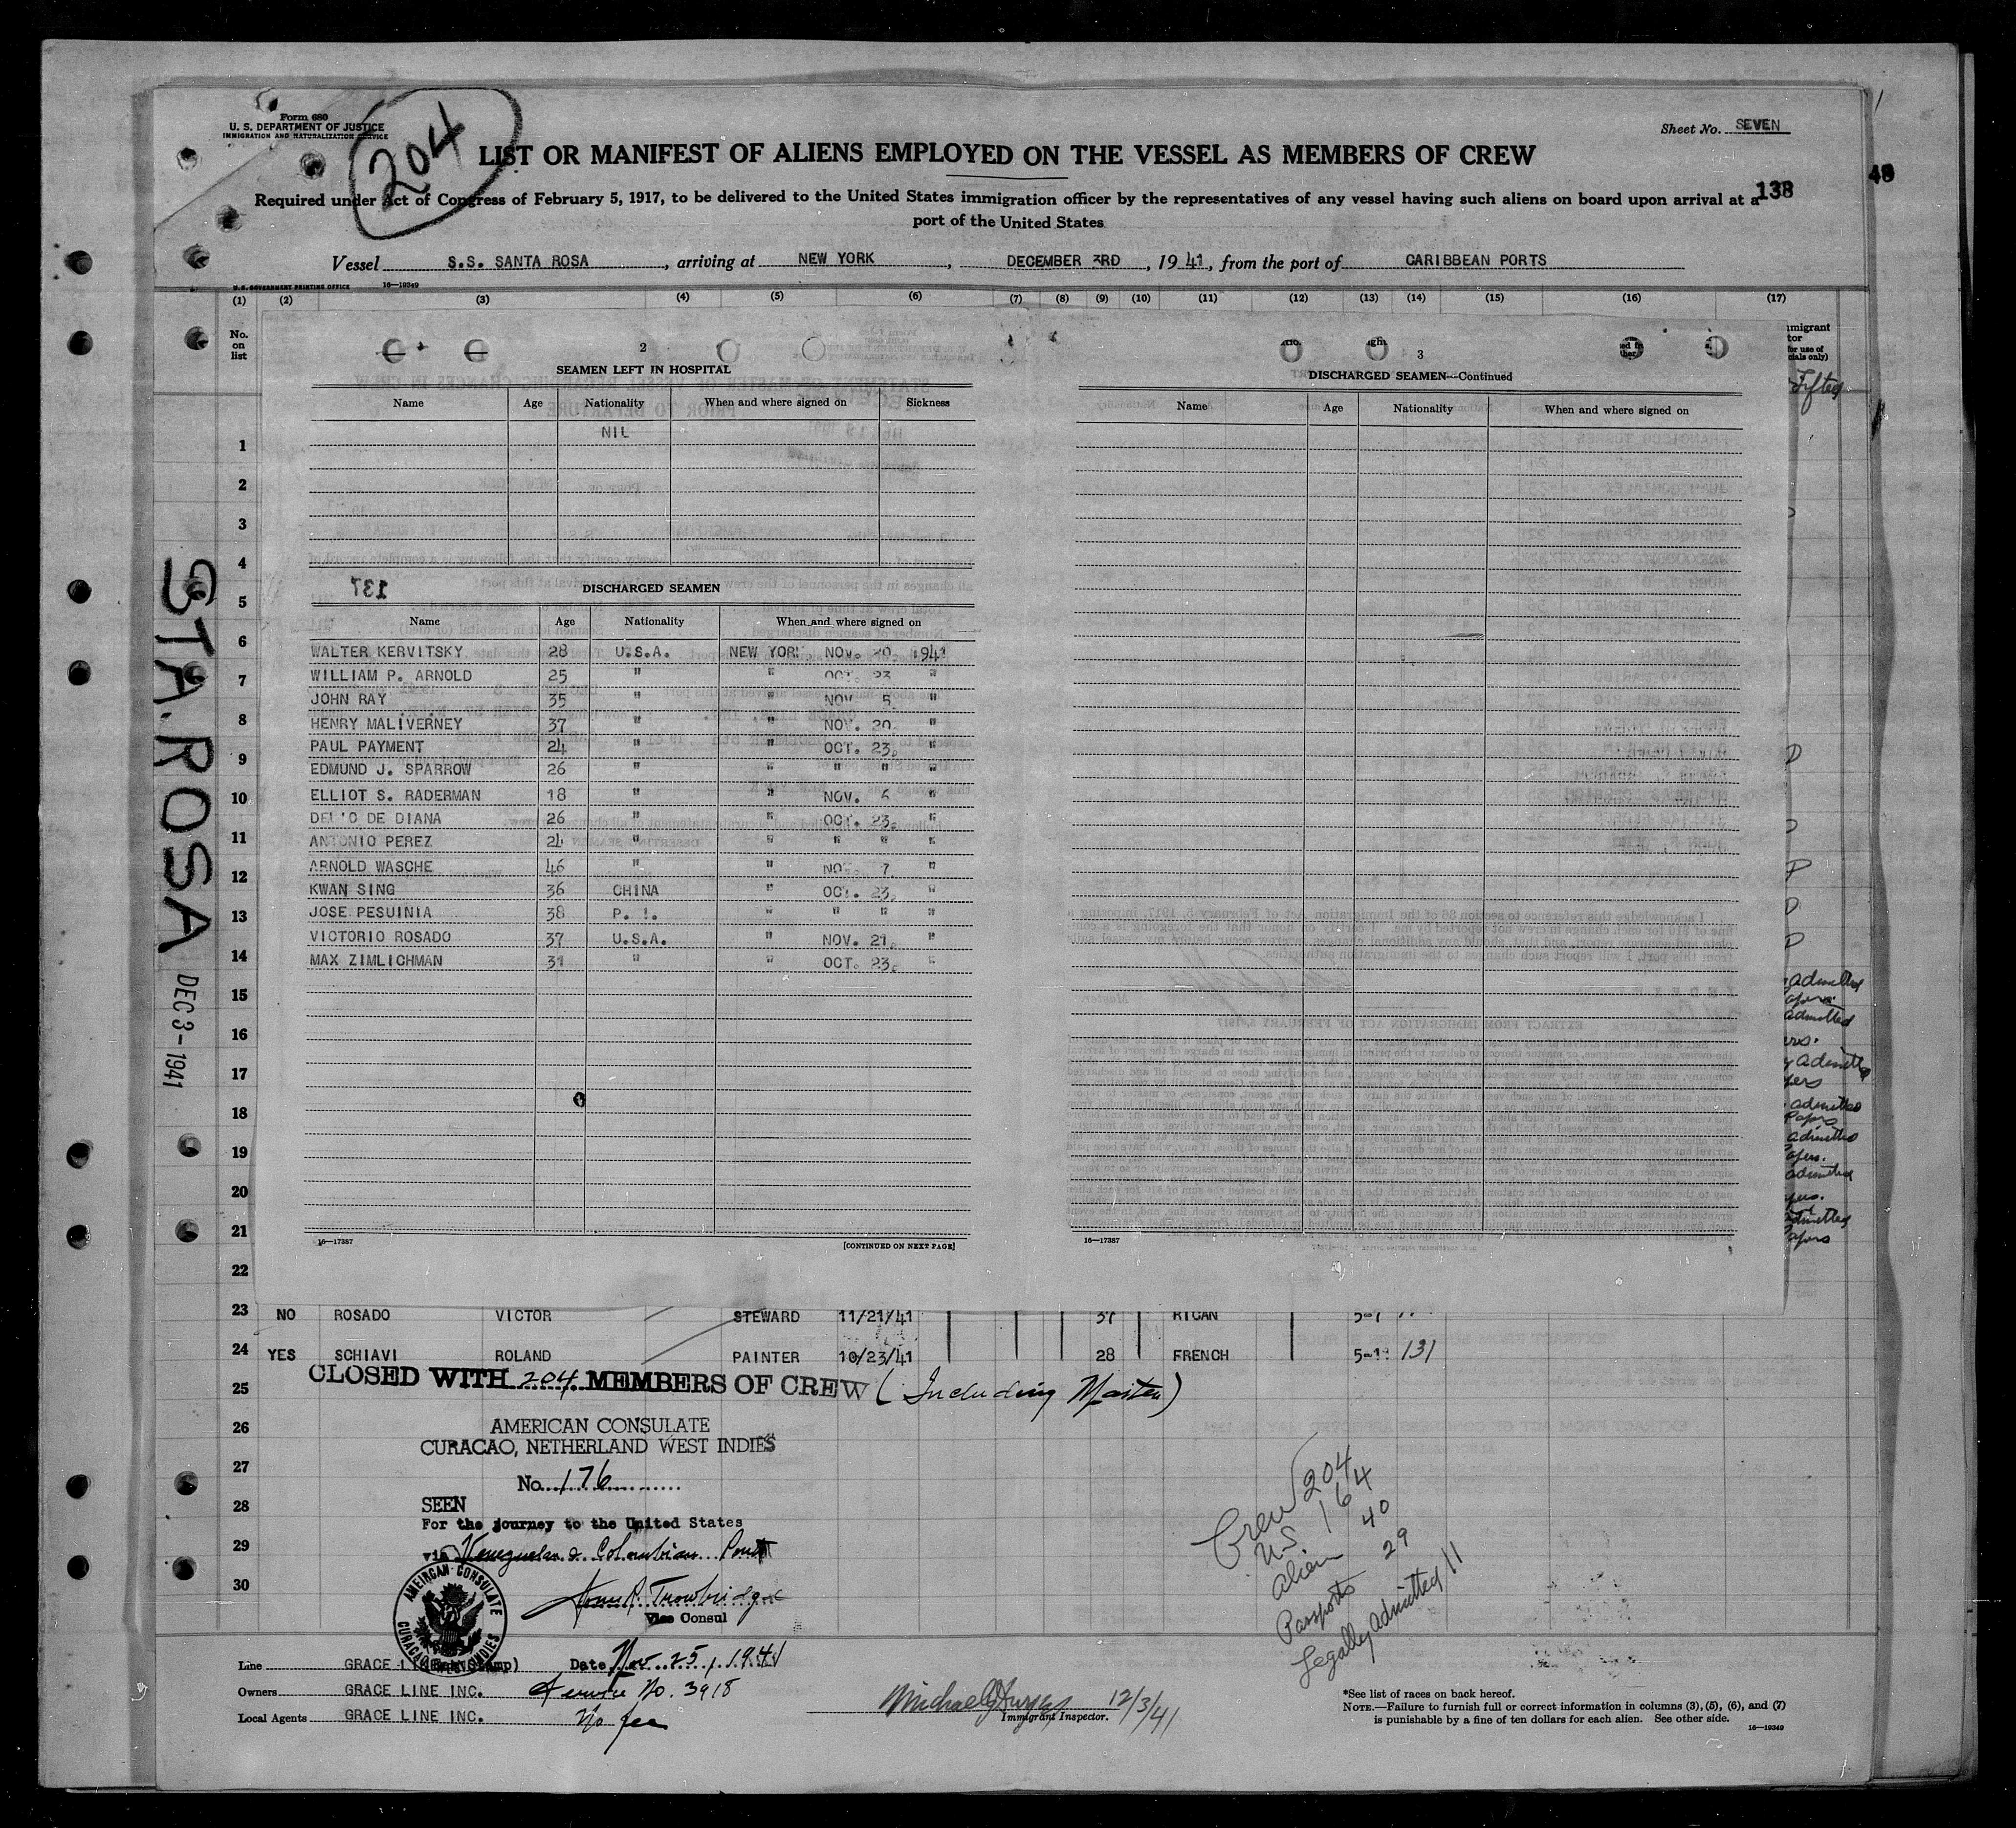 Form 680
U. S. DEPARTMENT OF JUSTICE
IMMIGRATION AND NATURALIZATION SERVICE
204
Sheet No. SEVEN
LIST OR MANIFEST OF ALIENS EMPLOYED ON THE VESSEL AS MEMBERS OF CREW
138
48
Required under Act of Congress of February 5, 1917, to be delivered to the United States immigration officer by the representatives of any vessel having such aliens on board upon arrival at a
port of the United States
Vessel S.S. SANTA ROSA, arriving at NEW YORK, DECEMBER 3RD, 1941, from the port of CARIBBEAN PORTS
U.S. GOVERNMENT PRINTING OFFICE 16—19349
(1) (2) (3) (4) (5) (6) (7) (8) (9) (10) (11) (12) (13) (14) (15) (16) (17)
No. on list
2
SEAMEN LEFT IN HOSPITAL
Name Age Nationality When and where signed on Sickness
NIL
137
DISCHARGED SEAMEN
Name Age Nationality When and where signed on
WALTER KERVITSKY 28 U.S.A. NEW YORK, NOV. 20, 1941
WILLIAM P. ARNOLD 25 " " OCT. 23 "
JOHN RAY 35 " " NOV 5, "
HENRY MALIVERNEY 37 " " NOV. 20, "
PAUL PAYMENT 24 " " OCT. 23, "
EDMUND J. SPARROW 26 " " " " "
ELLIOT S. RADERMAN 18 " " NOV. 6 "
DELIO DE DIANA 26 " " OCT. 23, "
ANTONIO PEREZ 24 " " " " "
ARNOLD WASCHE 46 " " NOV. 7 "
KWAN SING 36 CHINA " OCT. 23, "
JOSE PESUINIA 38 P. I. " " " "
VICTORIO ROSADO 37 U.S.A. " NOV. 21, "
MAX ZIMLICHMAN 31 " " OCT. 23, "
16—17387 [CONTINUED ON NEXT PAGE]
3
DISCHARGED SEAMEN—Continued
Name Age Nationality When and where signed on
16—17387
1
2
3
4
5
6
7
8
9
10
11
12
13
14
15
16
17
18
19
20
21
22
23 NO ROSADO VICTOR STEWARD 11/21/41 37 RICAN 5-7
24 YES SCHIAVI ROLAND PAINTER 10/23/41 28 FRENCH 5-1 131
25
26
27
28
29
30
STA. ROSA DEC 3-1941
CLOSED WITH 204 MEMBERS OF CREW (Including Master)
AMERICAN CONSULATE
CURACAO, NETHERLAND WEST INDIES
No. 176
SEEN
For the journey to the United States
via Venezuelan & Colombian Ports
Trowbridge
Vice Consul
AMERICAN CONSULATE
CURACAO WEST INDIES
Date Nov 25, 1941
Service No. 3918
No fee
Crew 204
US 164
Alien 40
Passports 29
Legally Admitted 11
Line GRACE LINE
Owners GRACE LINE INC.
Local Agents GRACE LINE INC.
Michael 12/3/41
Immigrant Inspector.
*See list of races on back hereof.
NOTE.—Failure to furnish full or correct information in columns (3), (5), (6), and (7)
is punishable by a fine of ten dollars for each alien. See other side.
16—19349